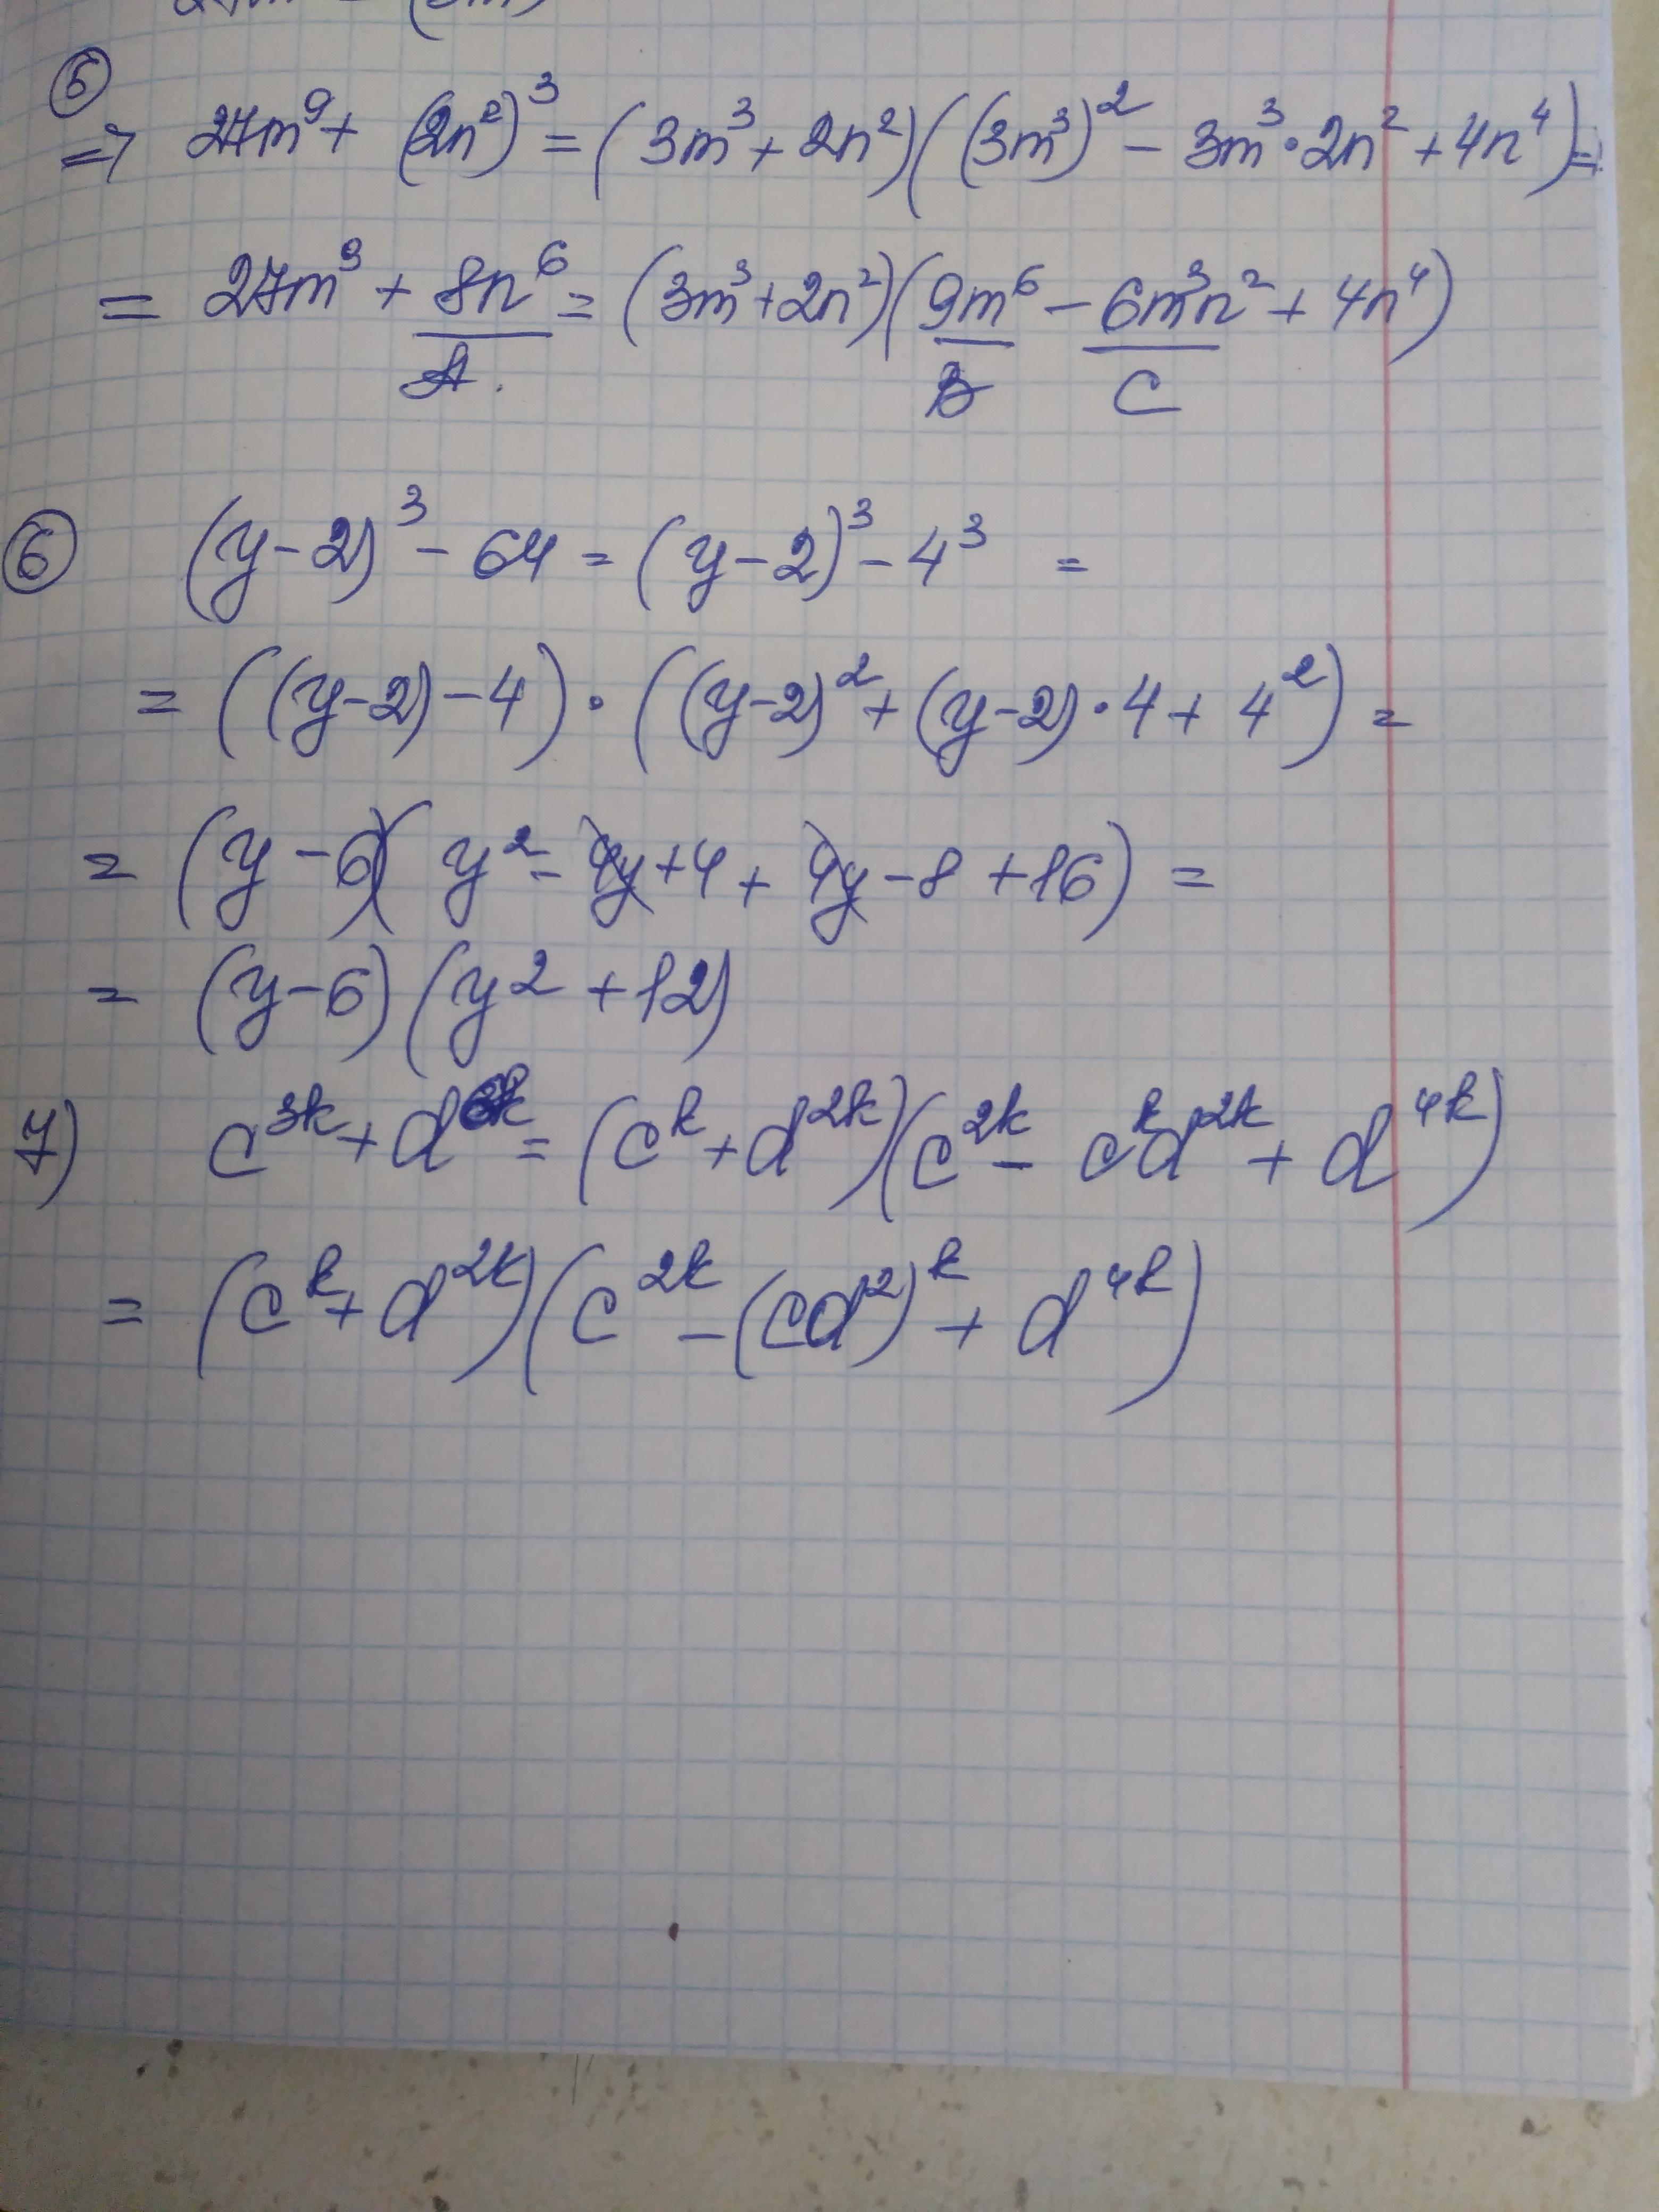 ⑤
⇒ 27m⁹ + (2n²)³ = (3m³ + 2n²)((3m³)² − 3m³·2n² + 4n⁴) =
= 27m⁹ + 8n⁶ = (3m³ + 2n²)(9m⁶ − 6m³n² + 4n⁴)
A. B C
⑥ (y − 2)³ − 64 = (y − 2)³ − 4³ =
= ((y − 2) − 4)·((y − 2)² + (y − 2)·4 + 4²) =
= (y − 6)(y² − 4y + 4 + 4y − 8 + 16) =
= (y − 6)(y² + 12)
7) c³ᵏ + d⁶ᵏ = (cᵏ + d²ᵏ)(c²ᵏ − cᵏd²ᵏ + d⁴ᵏ)
= (cᵏ + d²ᵏ)(c²ᵏ − (cd²)ᵏ + d⁴ᵏ)